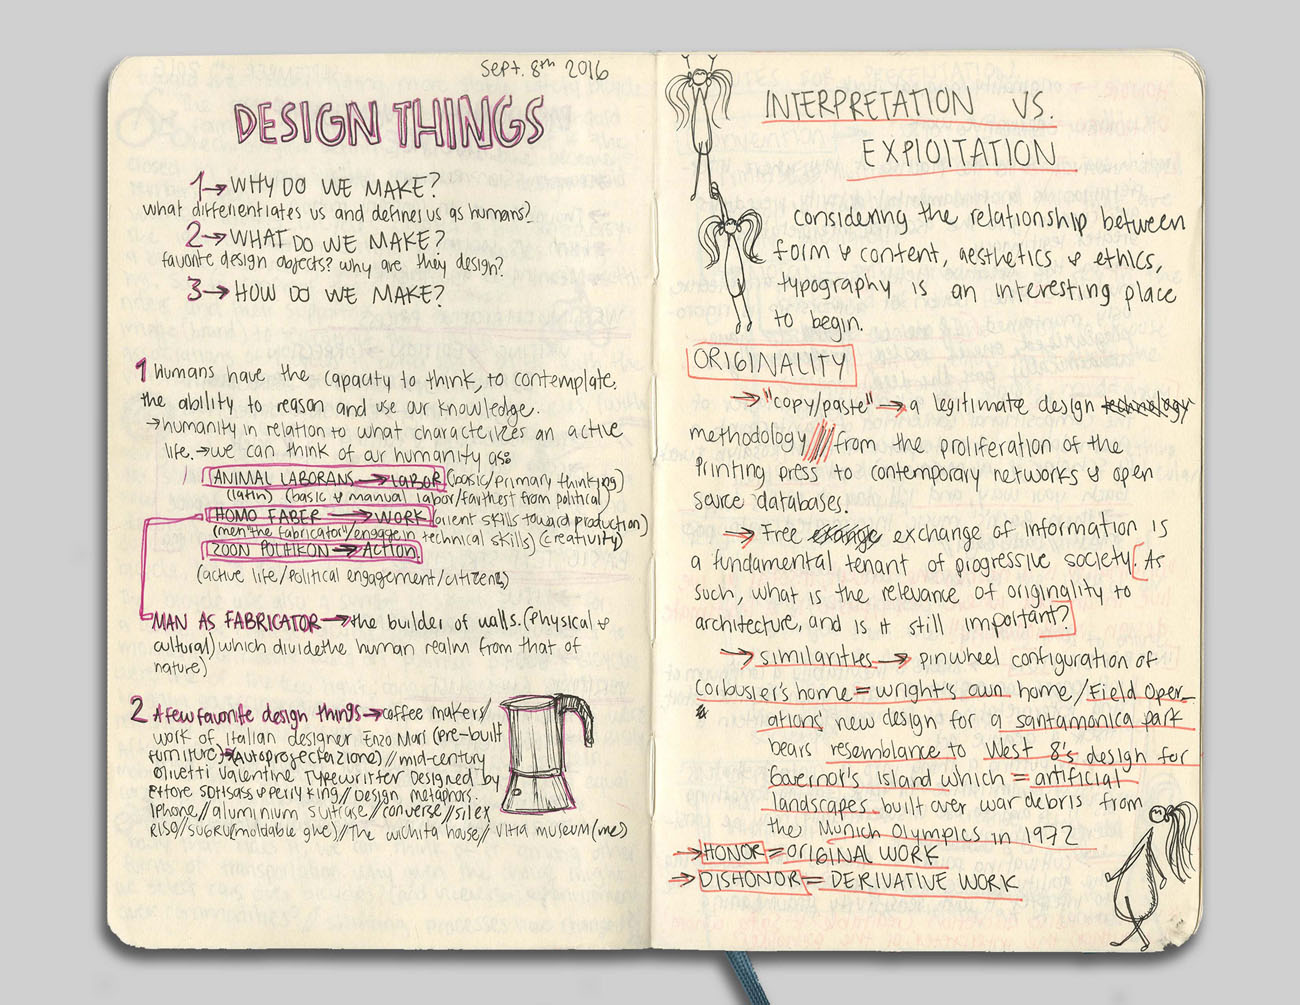 Sept. 8th 2016
DESIGN THINGS
1→ WHY DO WE MAKE?
what differentiates us and defines us as humans?
2→ WHAT DO WE MAKE?
favorite design objects? why are they design?
3→ HOW DO WE MAKE?
1 Humans have the capacity to think, to contemplate,
the ability to reason and use our knowledge.
→humanity in relation to what characterizes an active
life.→we can think of our humanity as:
ANIMAL LABORANS→LABOR (basic/primary thinking)
(latin) (basic & manual labor/farthest from political)
HOMO FABER→WORK (orient skills toward production)
(men "the fabricator"/engage in technical skills) (creativity)
ZOON POLITIKON→ACTION
(active life/Political engagement/citizens)
MAN AS FABRICATOR→the builder of walls. (Physical &
cultural) which divide the human realm from that of
nature)
2 A few favorite design things→coffee makers/
work of Italian designer Enzo Mari (pre-built
furniture)→(Autoprogettazione)//mid-century
Olivetti Valentine Typewriter Designed by
Ettore Sottsass & Perry King//Design metaphors.
Iphone//aluminium suitcase/converse//silex
RISO//SUGRU(moldable glue)//The wichita house//Vitra museum(me)
INTERPRETATION VS.
EXPLOITATION
considering the relationship between
form & content, aesthetics & ethics,
typography is an interesting place
to begin.
ORIGINALITY
→"copy/paste"→a legitimate design technology
methodology from the proliferation of the
Printing press to contemporary networks & open
source databases.
→Free exchange of information is
a fundamental tenant of progressive society. [As
such, what is the relevance of originality to
architecture, and is it still important?]
→similarities→pinwheel configuration of
Corbusier's home = wright's own home/Field Oper-
ations' new design for a santamonica park
bears resemblance to West 8's design for
Governor's Island which = artificial
landscapes built over war debris from
the Munich Olympics in 1972
→HONOR=ORIGINAL WORK
→DISHONOR=DERIVATIVE WORK